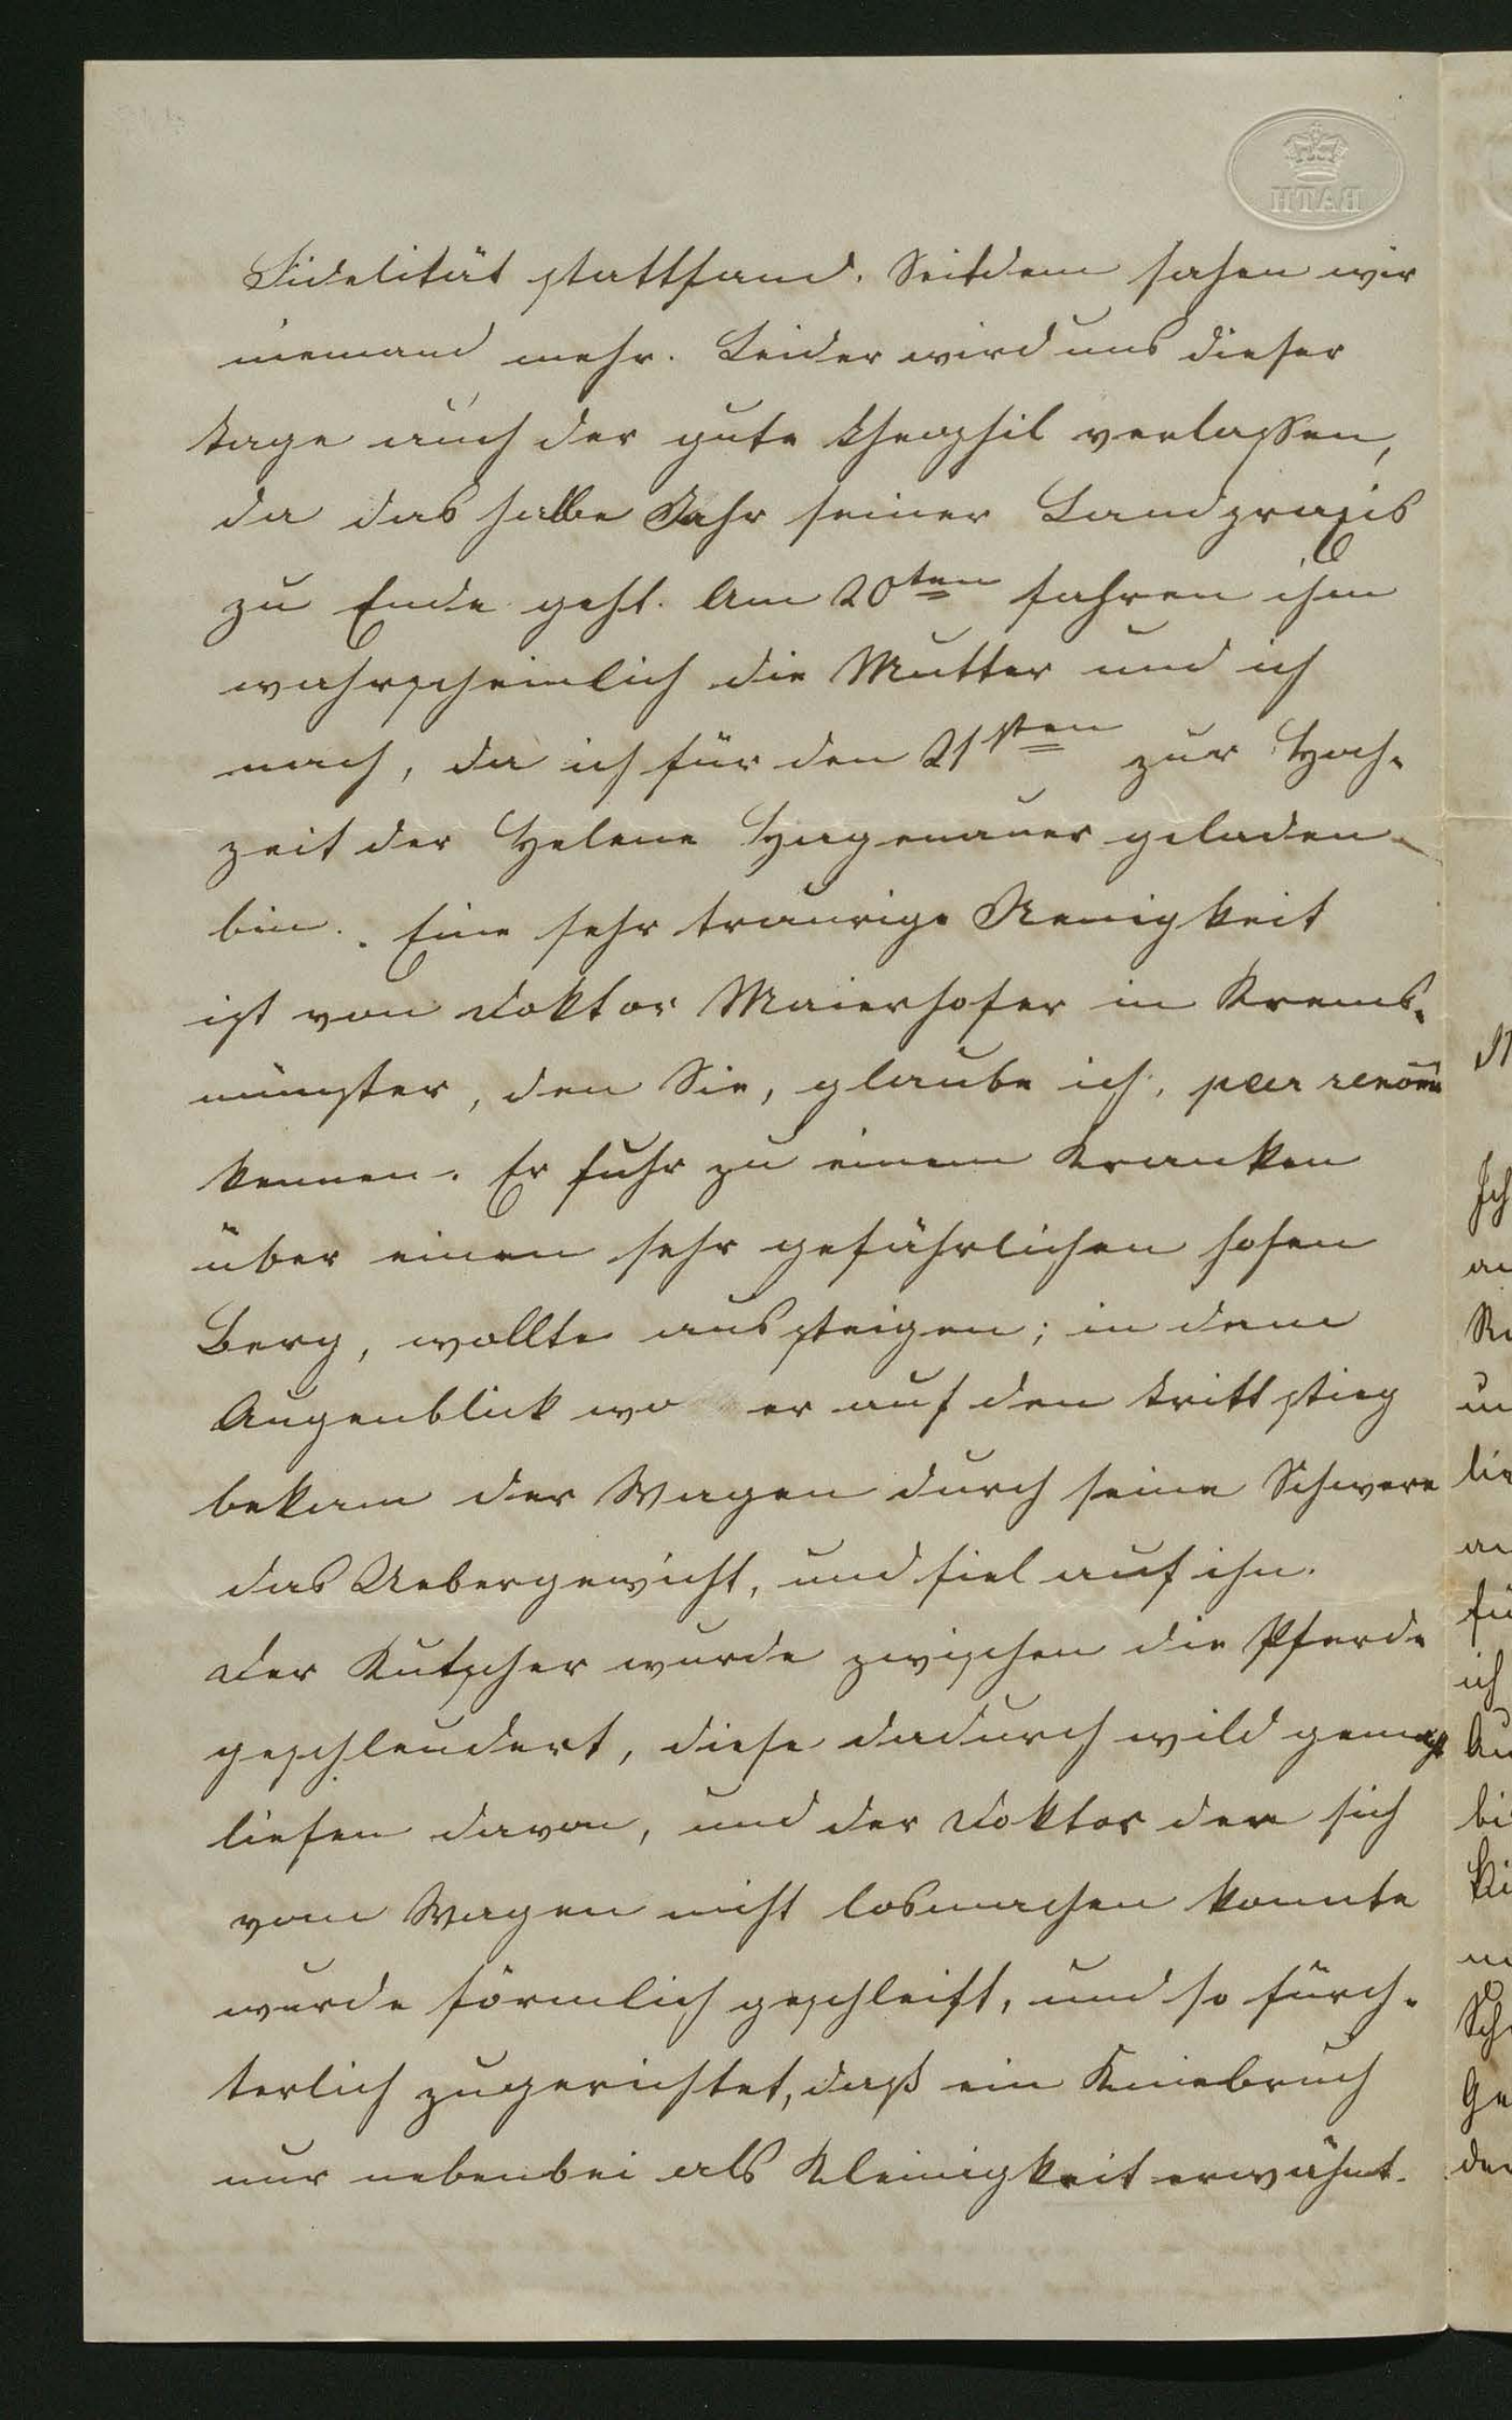 BATH
Fidelität stattfand. Seitdem sahen wir
niemand mehr. Leider wird uns dieser
Tage auch der gute Theophil verlassen,
da das halbe Jahr seiner Landpraxis
zu Ende geht. Am 20ten fahren ihm
wahrscheinlich die Mutter und ich
nach, da ich für den 21sten zur Hoch-
zeit der Helene Hagenauer geladen
bin. Eine sehr traurige Neuigkeit
ist von Doktor Maierhofer in Krems-
münster, den Sie, glaube ich, par renom̄
kennen. Er fuhr zu einem Kranken
über einen sehr gefährlichen hohen
Berg, wollte aussteigen; in dem
Augenblick wo er auf den Tritt stieg
bekam der Wagen durch seine Schwere
das Uebergewicht, und fiel auf ihn.
Der Kutscher wurde zwischen die Pferde
geschleudert, diese dadurch wild gemacht
liefen davon, und der Doktor der sich
vom Wagen nicht losmachen konnte
wurde förmlich geschleift, und so fürch-
terlich zugerichtet, daß ein Kniebruch
nur nebenbei als Kleinigkeit erwähnt.